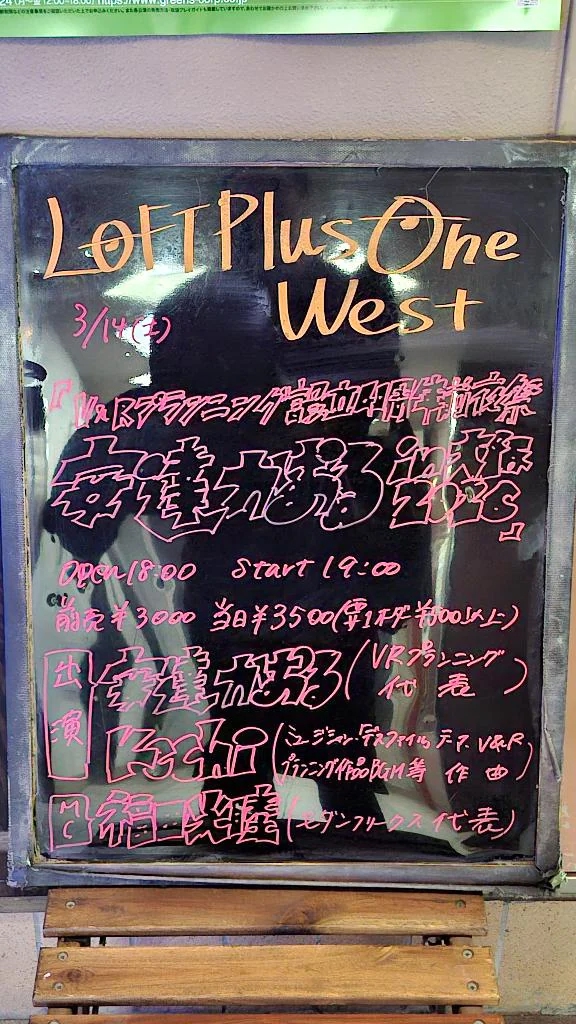 24(月~金 12:00~18:00) https://www.greens-corp.co.jp
LOFT Plus One
West
3/14(土)
『V&Rプランニング設立40周年前夜祭
安達かおる in 大阪
2026』
OPEN 18:00 Start 19:00
前売¥3000 当日¥3500(要1オーダー¥500以上)
出演
安達かおる(VRプランニング
代表)
Kechi(ミュージシャン・デスファイルのテーマ、V&R
プランニング作品BGM等 作曲)
MC
福一光瞳(モダンフリークス代表)